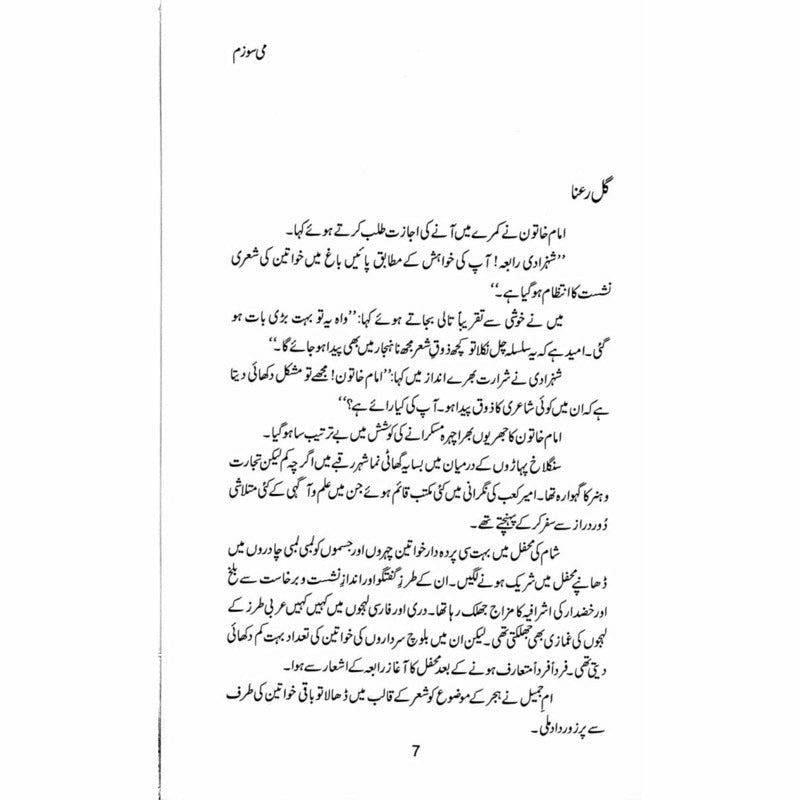 می سوزم
گل رعنا
امام خاتون نے کمرے میں آنے کی اجازت طلب کرتے ہوئے کہا۔
”شہزادی رابعہ! آپ کی خواہش کے مطابق پائیں باغ میں خواتین کی شعری
نشست کا انتظام ہو گیا ہے۔“
میں نے خوشی سے تقریباً تالی بجاتے ہوئے کہا: ”واہ یہ تو بہت بڑی بات ہو
گئی۔ امید ہے کہ یہ سلسلہ چل نکلا تو کچھ ذوقِ شعر مجھ ناہنجار میں بھی پیدا ہو جائے گا۔“
شہزادی نے شرارت بھرے انداز میں کہا: ”امام خاتون! مجھے تو مشکل دکھائی دیتا
ہے کہ ان میں کوئی شاعری کا ذوق پیدا ہو۔ آپ کی کیا رائے ہے؟“
امام خاتون کا جھریوں بھرا چہرہ مسکرانے کی کوشش میں بے ترتیب سا ہو گیا۔
سنگلاخ پہاڑوں کے درمیان میں بسا یہ گھاٹی نما شہر رقبے میں اگرچہ کم لیکن تجارت
و ہنر کا گہوارہ تھا۔ امیر کعب کی نگرانی میں کئی مکتب قائم ہوئے جن میں علم و آگہی کے کئی متلاشی
دُور دراز سے سفر کر کے پہنچتے تھے۔
شام کی محفل میں بہت سی پردہ دار خواتین چہروں اور جسموں کو لمبی لمبی چادروں میں
ڈھانپے محفل میں شریک ہونے لگیں۔ ان کے طرزِ گفتگو اور اندازِ نشست و برخاست سے بلخ
اور خضدار کی اشرافیہ کا مزاج جھلک رہا تھا۔ دری اور فارسی لہجوں میں کہیں کہیں عربی طرز کے
لہجوں کی غمازی بھی جھلکتی تھی۔ لیکن ان میں بلوچ سرداروں کی خواتین کی تعداد بہت کم دکھائی
دیتی تھی۔ فرداً فرداً متعارف ہونے کے بعد محفل کا آغاز رابعہ کے اشعار سے ہوا۔
امِ جمیل نے ہجر کے موضوع کو شعر کے قالب میں ڈھالا تو باقی خواتین کی طرف
سے پرزور داد ملی۔
7